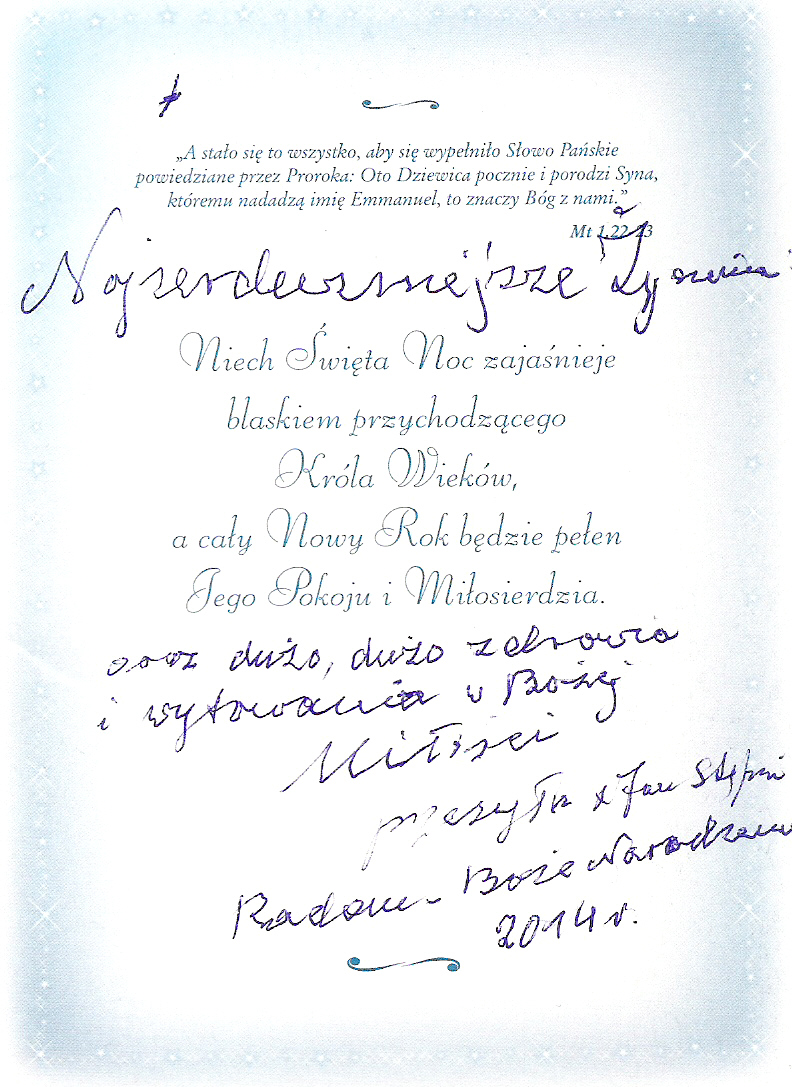 „A stało się to wszystko, aby się wypełniło Słowo Pańskie
powiedziane przez Proroka: Oto Dziewica pocznie i porodzi Syna,
któremu nadadzą imię Emmanuel, to znaczy Bóg z nami.”
Mt 1,22-23
Najserdeczniejsze Życzenia
Niech Święta Noc zajaśnieje
blaskiem przychodzącego
Króla Wieków,
a cały Nowy Rok będzie pełen
Jego Pokoju i Miłosierdzia.
oraz dużo, dużo zdrowia
i wytrwania w Bożej
Miłości
przesyła x Jan
Radom - Boże Narodzenie
2014 r.